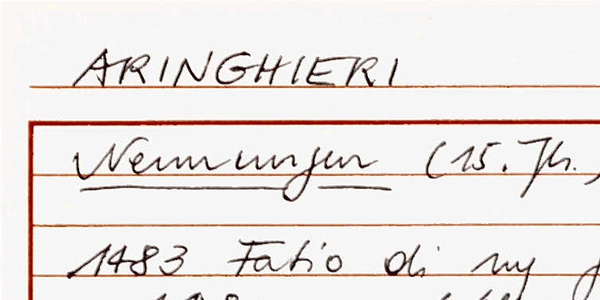 ARINGHIERI
Nennungen (15. Jh.,
1483 Fatio di